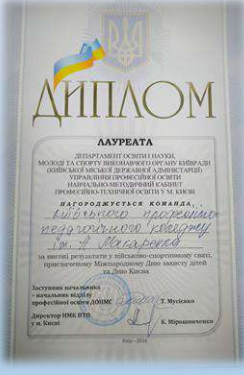 ДИПЛОМ
ЛАУРЕАТА
ДЕПАРТАМЕНТ ОСВІТИ І НАУКИ,
МОЛОДІ ТА СПОРТУ ВИКОНАВЧОГО ОРГАНУ КИЇВРАДИ
(КИЇВСЬКОЇ МІСЬКОЇ ДЕРЖАВНОЇ АДМІНІСТРАЦІЇ)
УПРАВЛІННЯ ПРОФЕСІЙНОЇ ОСВІТИ
НАВЧАЛЬНО-МЕТОДИЧНИЙ КАБІНЕТ
ПРОФЕСІЙНО-ТЕХНІЧНОЇ ОСВІТИ У М. КИЄВІ
НАГОРОДЖУЄТЬСЯ КОМАНДА
Київського професійно-
педагогічного коледжу
ім. А. Макаренка
за високі результати у військово-спортивному святі,
присвяченому Міжнародному Дню захисту дітей
та Дню Києва
Заступник начальника
– начальник відділу
професійної освіти ДОНМС Т. Мусієнко
Директор НМК ПТО
у м. Києві К. Мірошниченко
Київ - 2016